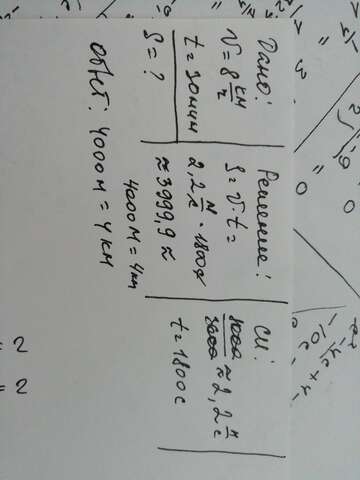 Дано:
V = 8 км/ч
t = 30 мин
S = ?
Решение:
S = V · t =
2,2 м/с · 1800 с
≈ 3999,9 ≈
4000 м = 4 км
СИ:
8000/3600 ≈ 2,2 м/с
t = 1800 с
Ответ: 4000 м = 4 км
= 2
= 2